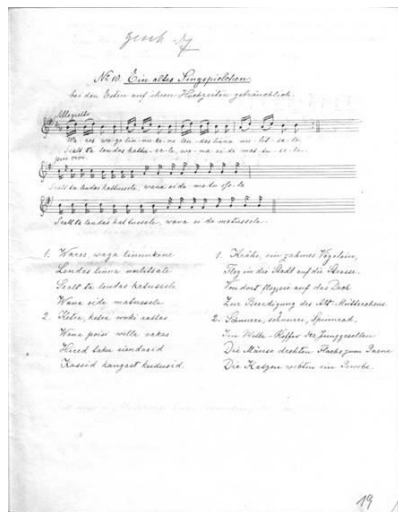 No 10. Ein altes Singspielchen
bei den Esten auf ihren Hochzeiten gebräuchlich.
Allegretto
Wa-res wa-ga lin-nu-ke-ne lon-das linna uu-lit-sa-le
Sealt ta lendas kattu-se-le, wa-na ei-de mat-su-se-le.
Sealt ta lendas kattussele, wana eide matussele
Sealt ta lendas kattussele, wana eide matussele.
1. Wares waga linnukene
Lendas linna uulitsale
Sealt ta lendas katussele
Wana eide matussele
2. Ketra, ketra wokki ratas
Wana poisi willa wakas
Hiired taka
Kassid kangast kudusid.
1. Krähe, ein zahmes Vögelein,
Flog in der Stadt auf die Strasse.
Von dort flog sie auf das Dach
Zur Beerdigung des Alt-Mütterchens
2. Schnurre, schnurre, Spinnrad,
Im Wolle-Koffer des Junggesellen
Die Mäuse drehten Flachs zum
Die Katzen webten ein Gewebe.
19